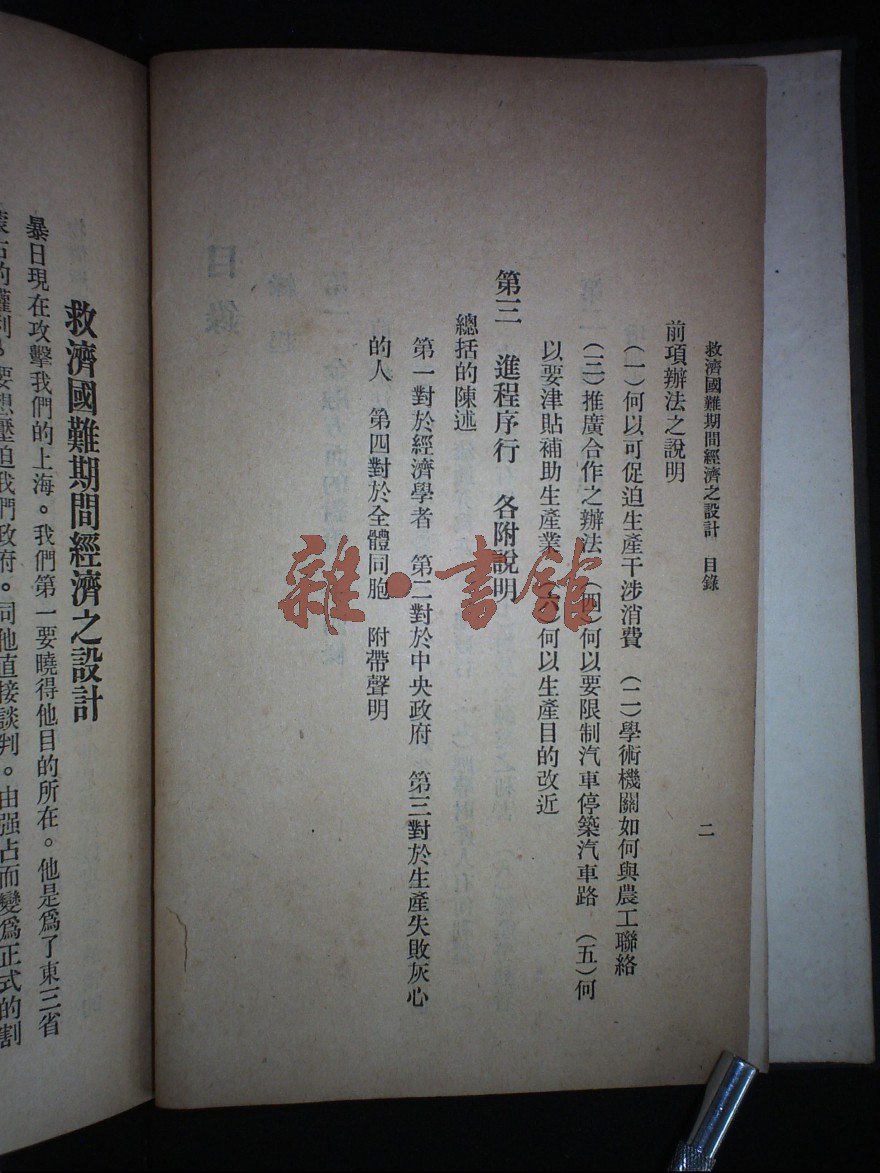 救濟國難期間經濟之設計　目錄
二
前項辦法之說明
（一）何以可促迫生產干涉消費　（二）學術機關如何與農工聯絡
（三）推廣合作之辦法　（四）何以要限制汽車停築汽車路　（五）何
以要津貼補助生產業　（六）何以生產目的改近
第三　進程序行　各附說明
總括的陳述
第一對於經濟學者　第二對於中央政府　第三對於生產失敗灰心
的人　第四對於全體同胞　附帶聲明
雜·書館
救濟國難期間經濟之設計
暴日現在攻擊我們的上海。我們第一要曉得他目的所在。他是爲了東三省
的權利。要想壓迫我們政府。同他直接談判。由强占而變爲正式的割